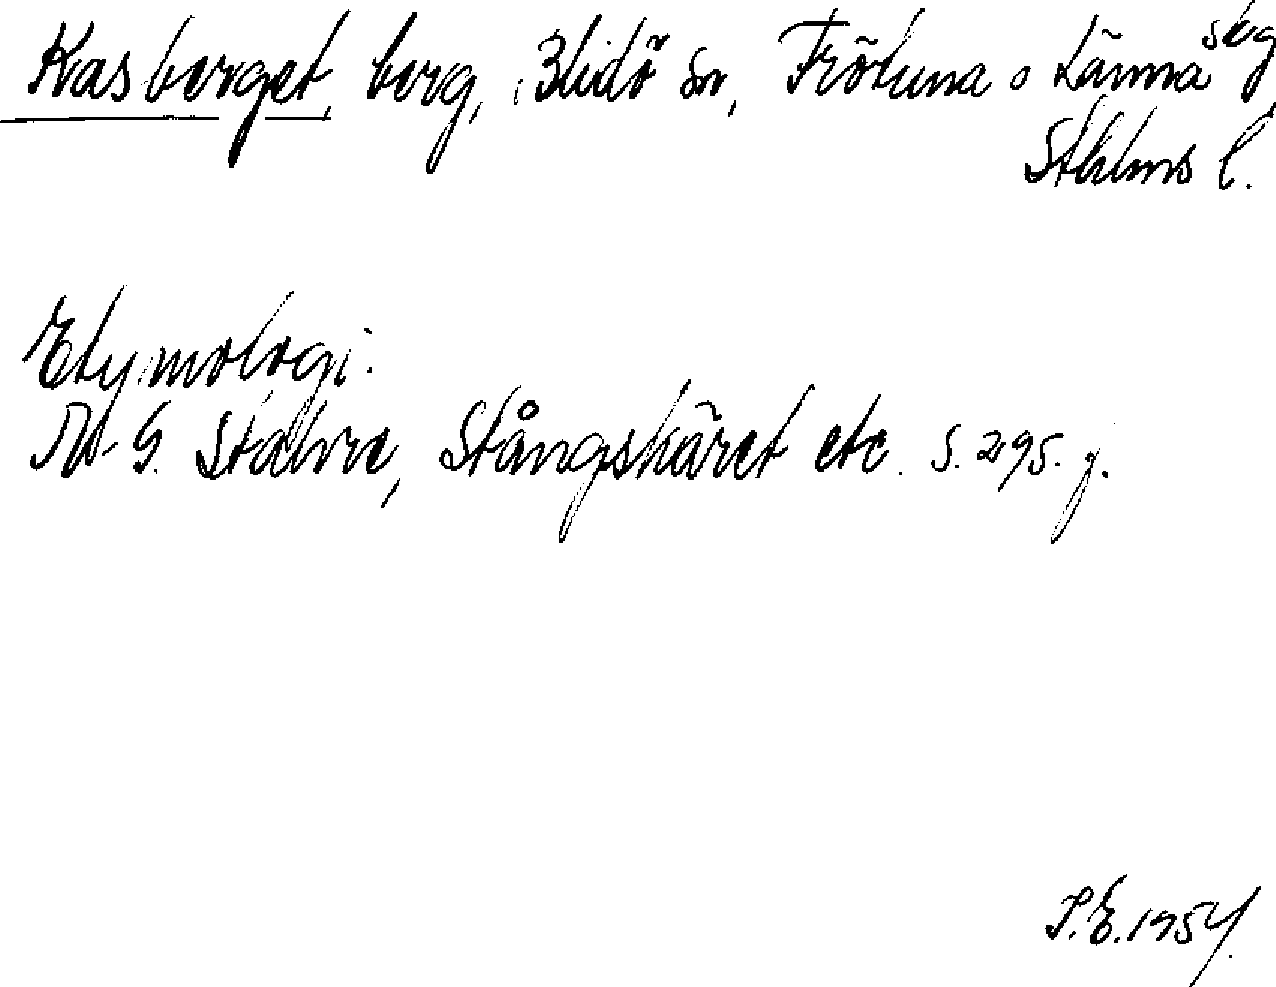 Kasberget, berg, i Blidö sn, Frötuna o Länna skg
Sthlms l.
Etymologi:
N. G. Stahre, Stångskäret etc. s. 295. f.
S. E. 1954.